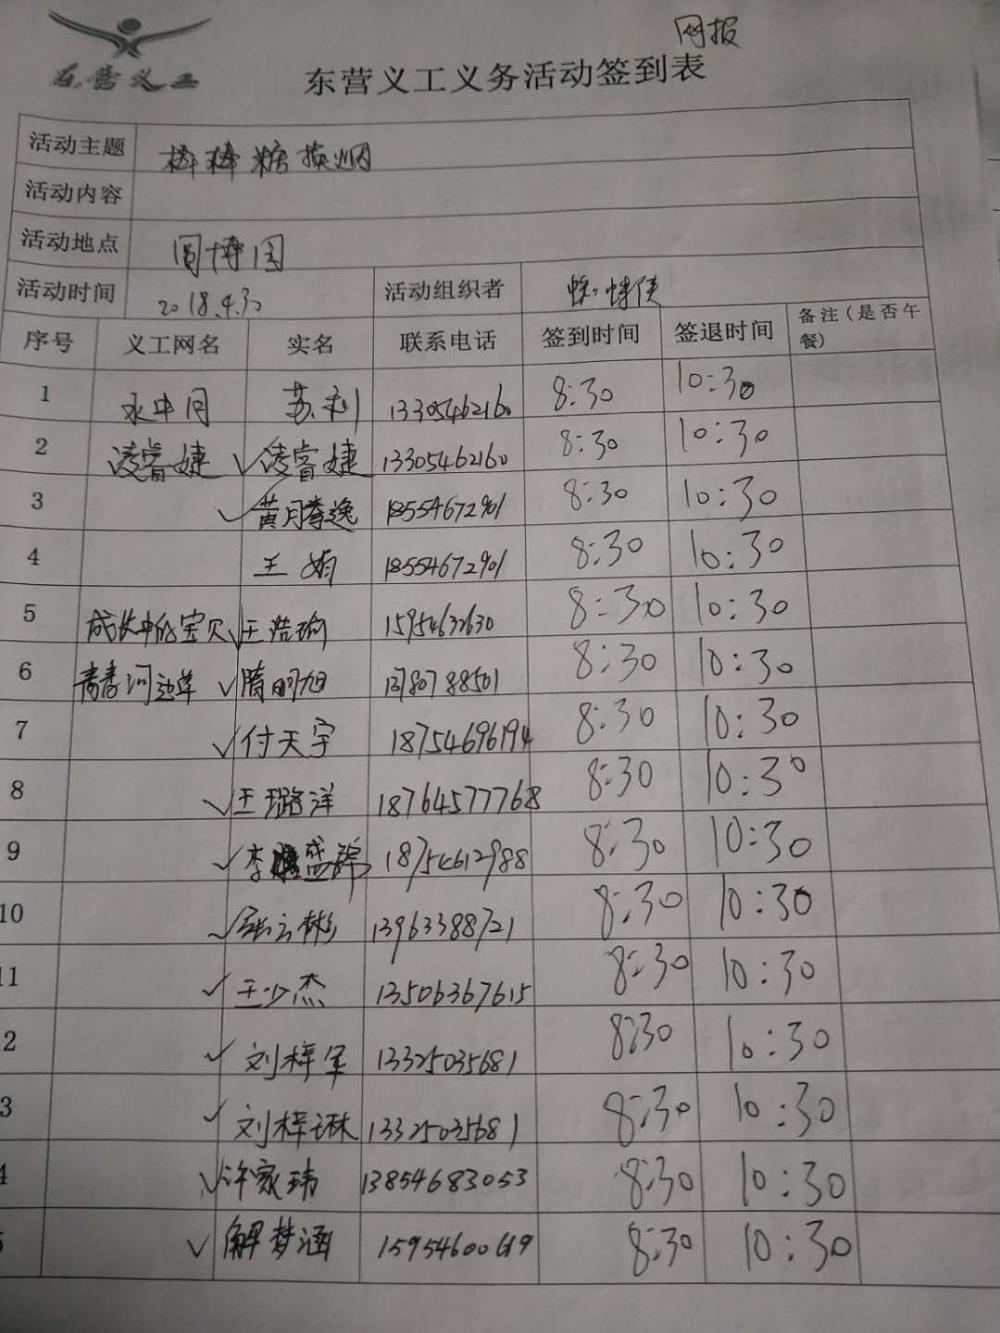 网报
东营义工
东营义工义务活动签到表
活动主题 棒棒糖换烟
活动内容
活动地点 园博园
活动时间 2018.4.30 活动组织者 蜘蛛侠
序号 义工网名 实名 联系电话 签到时间 签退时间 备注(是否午餐)
1 永中同 苏利 13305462160 8:30 10:30
2 凌睿婕 ✓凌睿婕 13305462160 8:30 10:30
3 ✓黄月李逸 18554672901 8:30 10:30
4 王娟 18554672901 8:30 10:30
5 成长中的宝贝 ✓王浩瑜 15954632630 8:30 10:30
6 青青河边草 ✓隋明旭 13780788501 8:30 10:30
7 ✓付天宇 18754696194 8:30 10:30
8 ✓王璐洋 18764577768 8:30 10:30
9 ✓李盛锦 18754612988 8:30 10:30
10 ✓张云彬 13963388721 8:30 10:30
11 ✓王少杰 13506367615 8:30 10:30
2 ✓刘梓军 13325035681 8:30 10:30
3 ✓刘梓琳 13325035681 8:30 10:30
4 ✓许家玮 13854683053 8:30 10:30
5 ✓解梦涵 15954600619 8:30 10:30